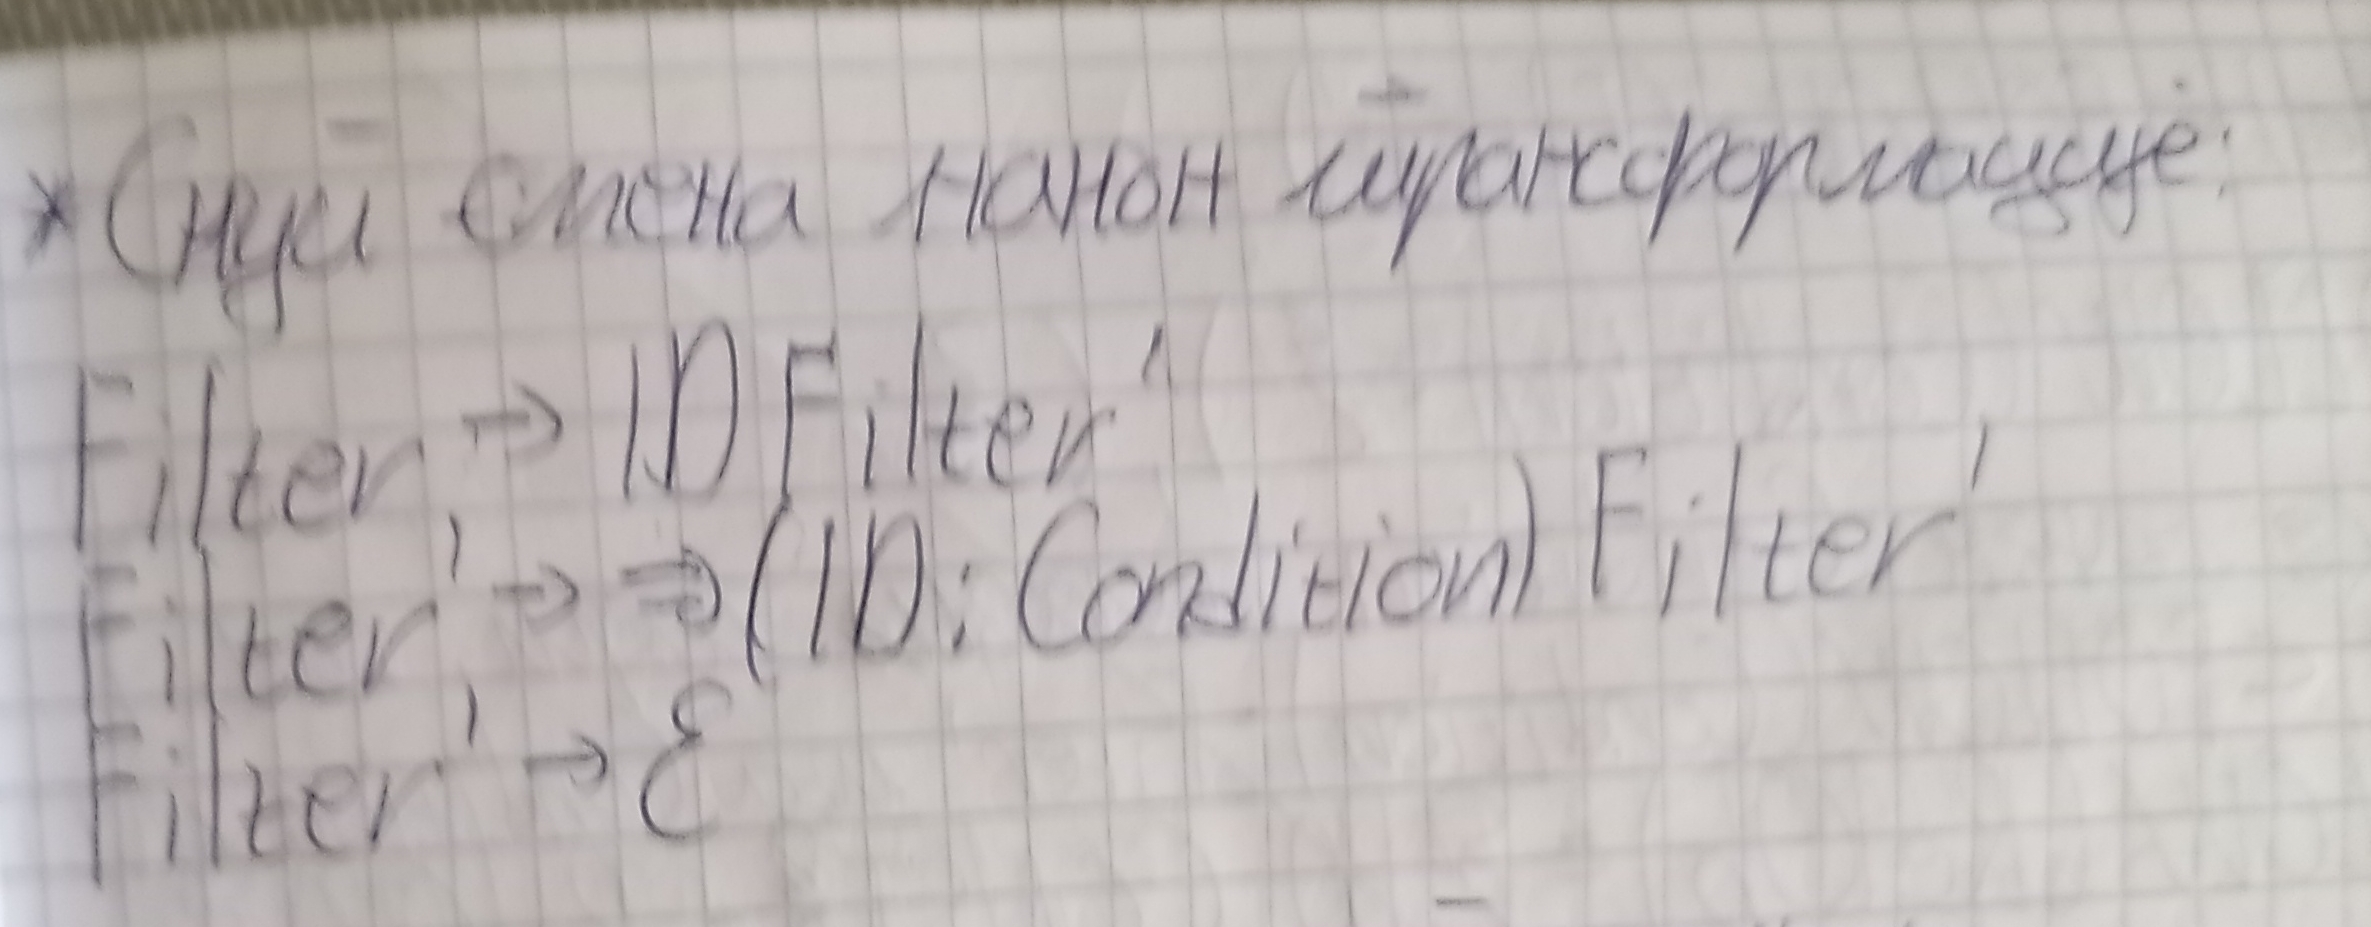 * Скуп смена након трансформације:
Filter → ID Filter'
Filter' → ⇒(ID: Condition) Filter'
Filter' → ε